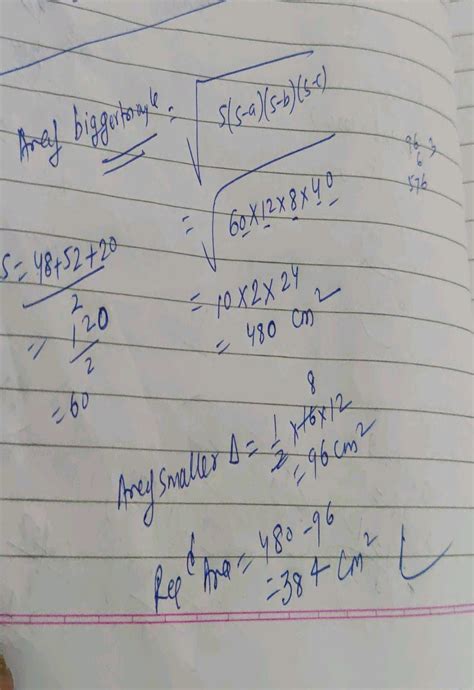 Area of bigger triangle = √s(s-a)(s-b)(s-c)
= √60×12×8×40
= 10×2×24
= 480 cm²
S = 48+52+20
2
= 120
2
= 60
96
6
576
Area of smaller Δ = 1/2 ×16×12
8
= 96 cm²
Req d Area = 480-96
= 384 cm²